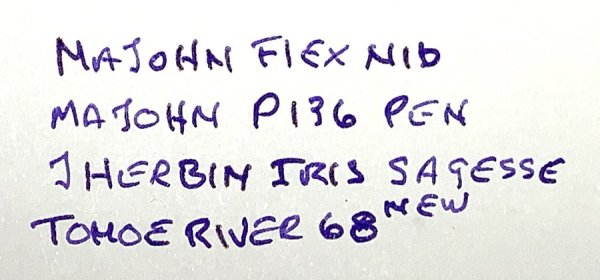 MAJOHN FlEX NIb
MAJOHN P136 PEN
J HERBIN IRIS SAGESSE
TOMOE RIVER 68 NEW